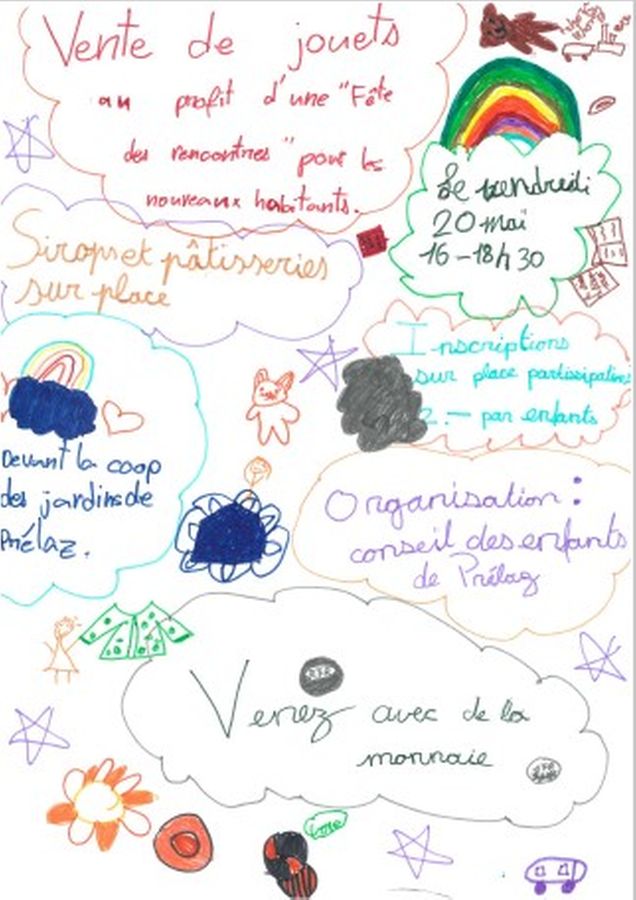 Vente de jouets
au profit d'une "Fête
des rencontres" pour les
nouveaux habitants.
Le vendredi
20 mai
16-18h30
Sirops et pâtisseries
sur place
Inscriptions
sur place partissipation
2.- par enfants
Devant la coop
des jardins de
Prélaz.
Organisation:
conseil des enfants
de Prélaz
Venez avec de la
monnaie